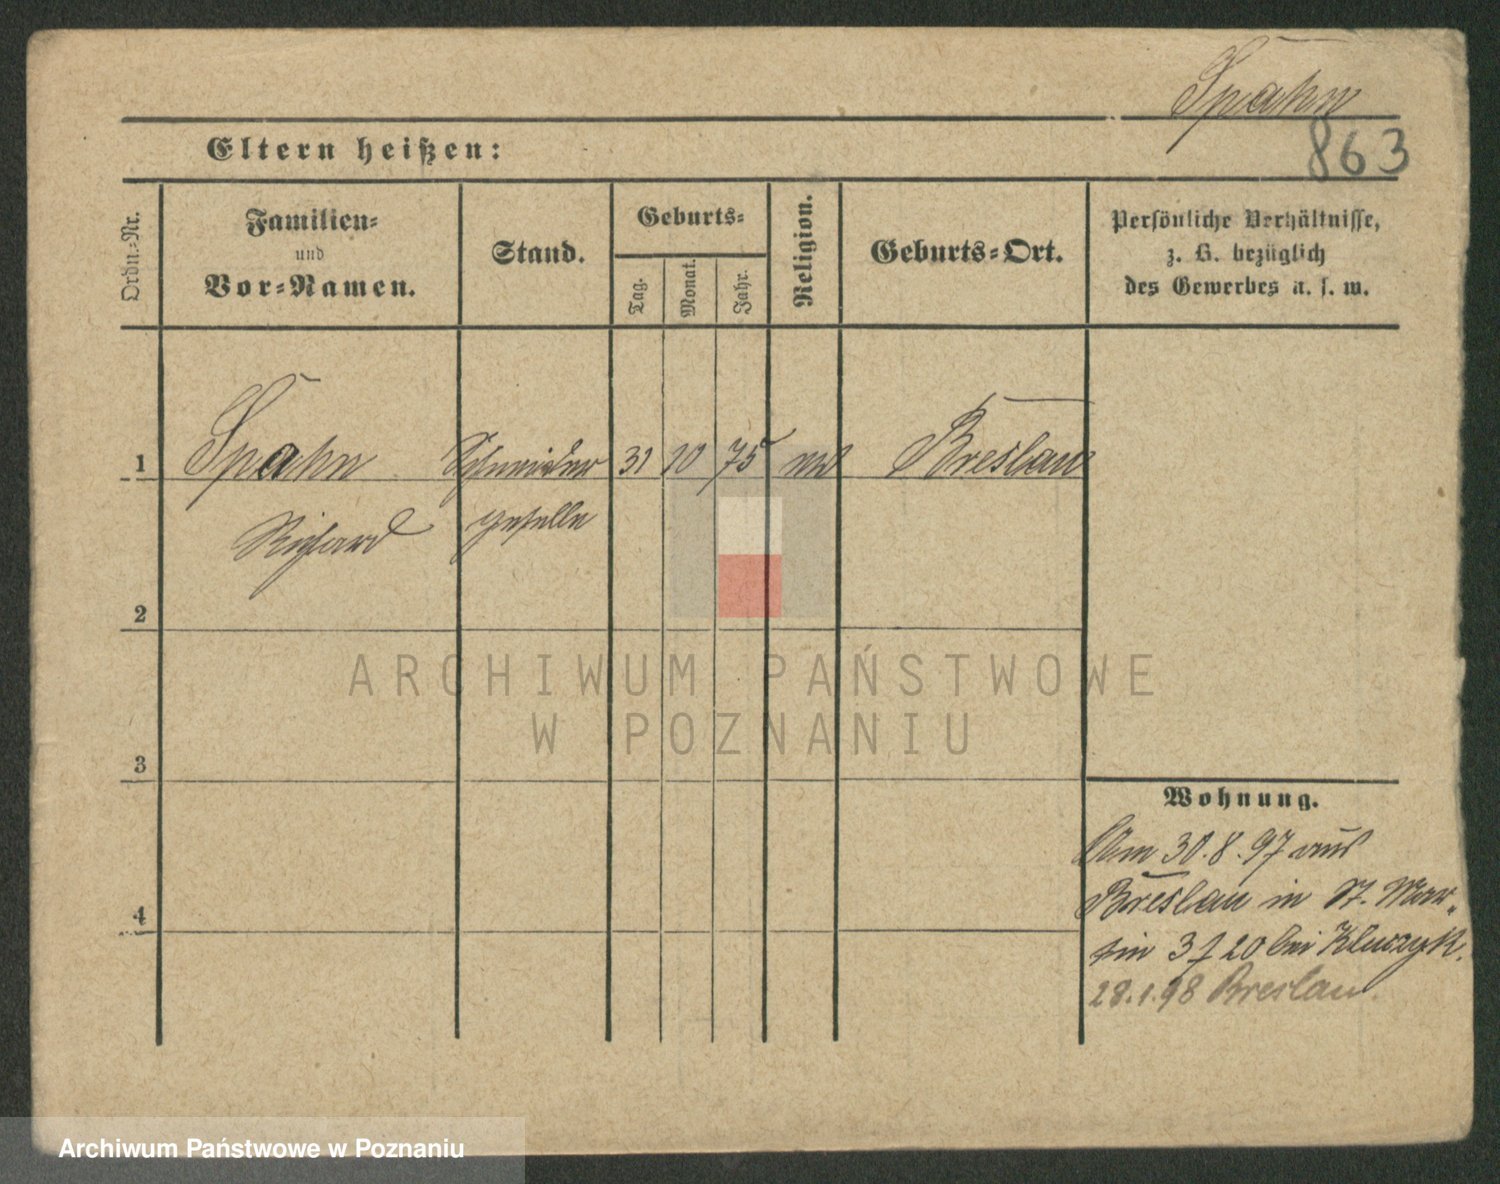 Spahn
863
Eltern heißen:
Ordn.-Nr.
Familien-
und
Vor-Namen.
Stand.
Geburts-
Tag.
Monat.
Jahr.
Religion.
Geburts-Ort.
Persönliche Verhältnisse,
z. B. bezüglich
des Gewerbes u. s. w.
1 Spahn Schneider 31 10 75 Breslau
Richard geselle
2
3
4
Wohnung.
Am 30.8.97 aus
Breslau in St. Mar-
tin 37 20 bei Kluczyk.
28.1.98 Breslau.
ARCHIWUM PAŃSTWOWE
W POZNANIU
Archiwum Państwowe w Poznaniu